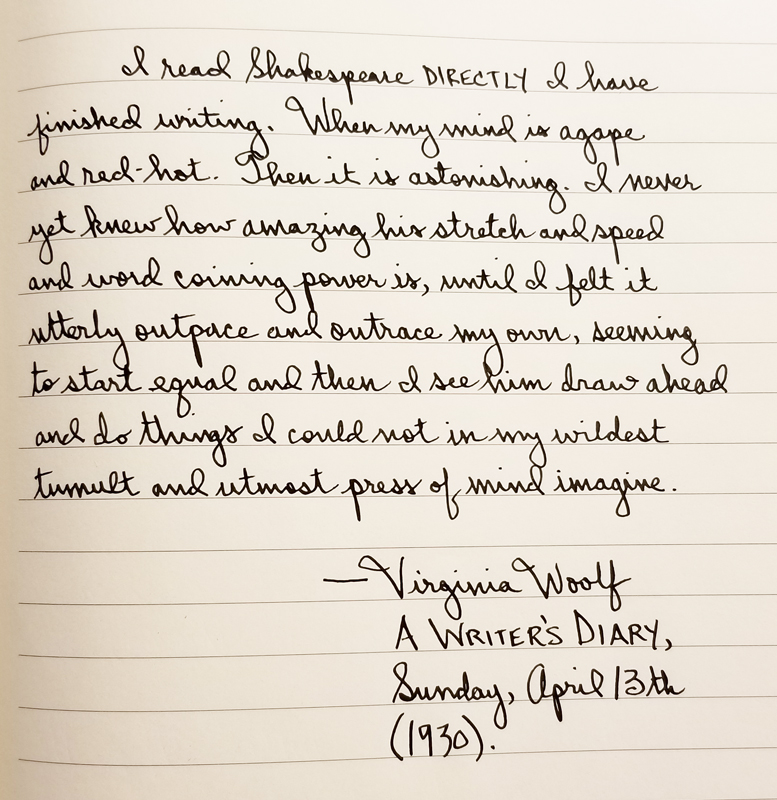 I read Shakespeare DIRECTLY I have
finished writing. When my mind is agape
and red-hot. Then it is astonishing. I never
yet knew how amazing his stretch and speed
and word coining power is, until I felt it
utterly outpace and outrace my own, seeming
to start equal and then I see him draw ahead
and do things I could not in my wildest
tumult and utmost press of mind imagine.
—Virginia Woolf
A WRITER'S DIARY,
Sunday, April 13th
(1930).